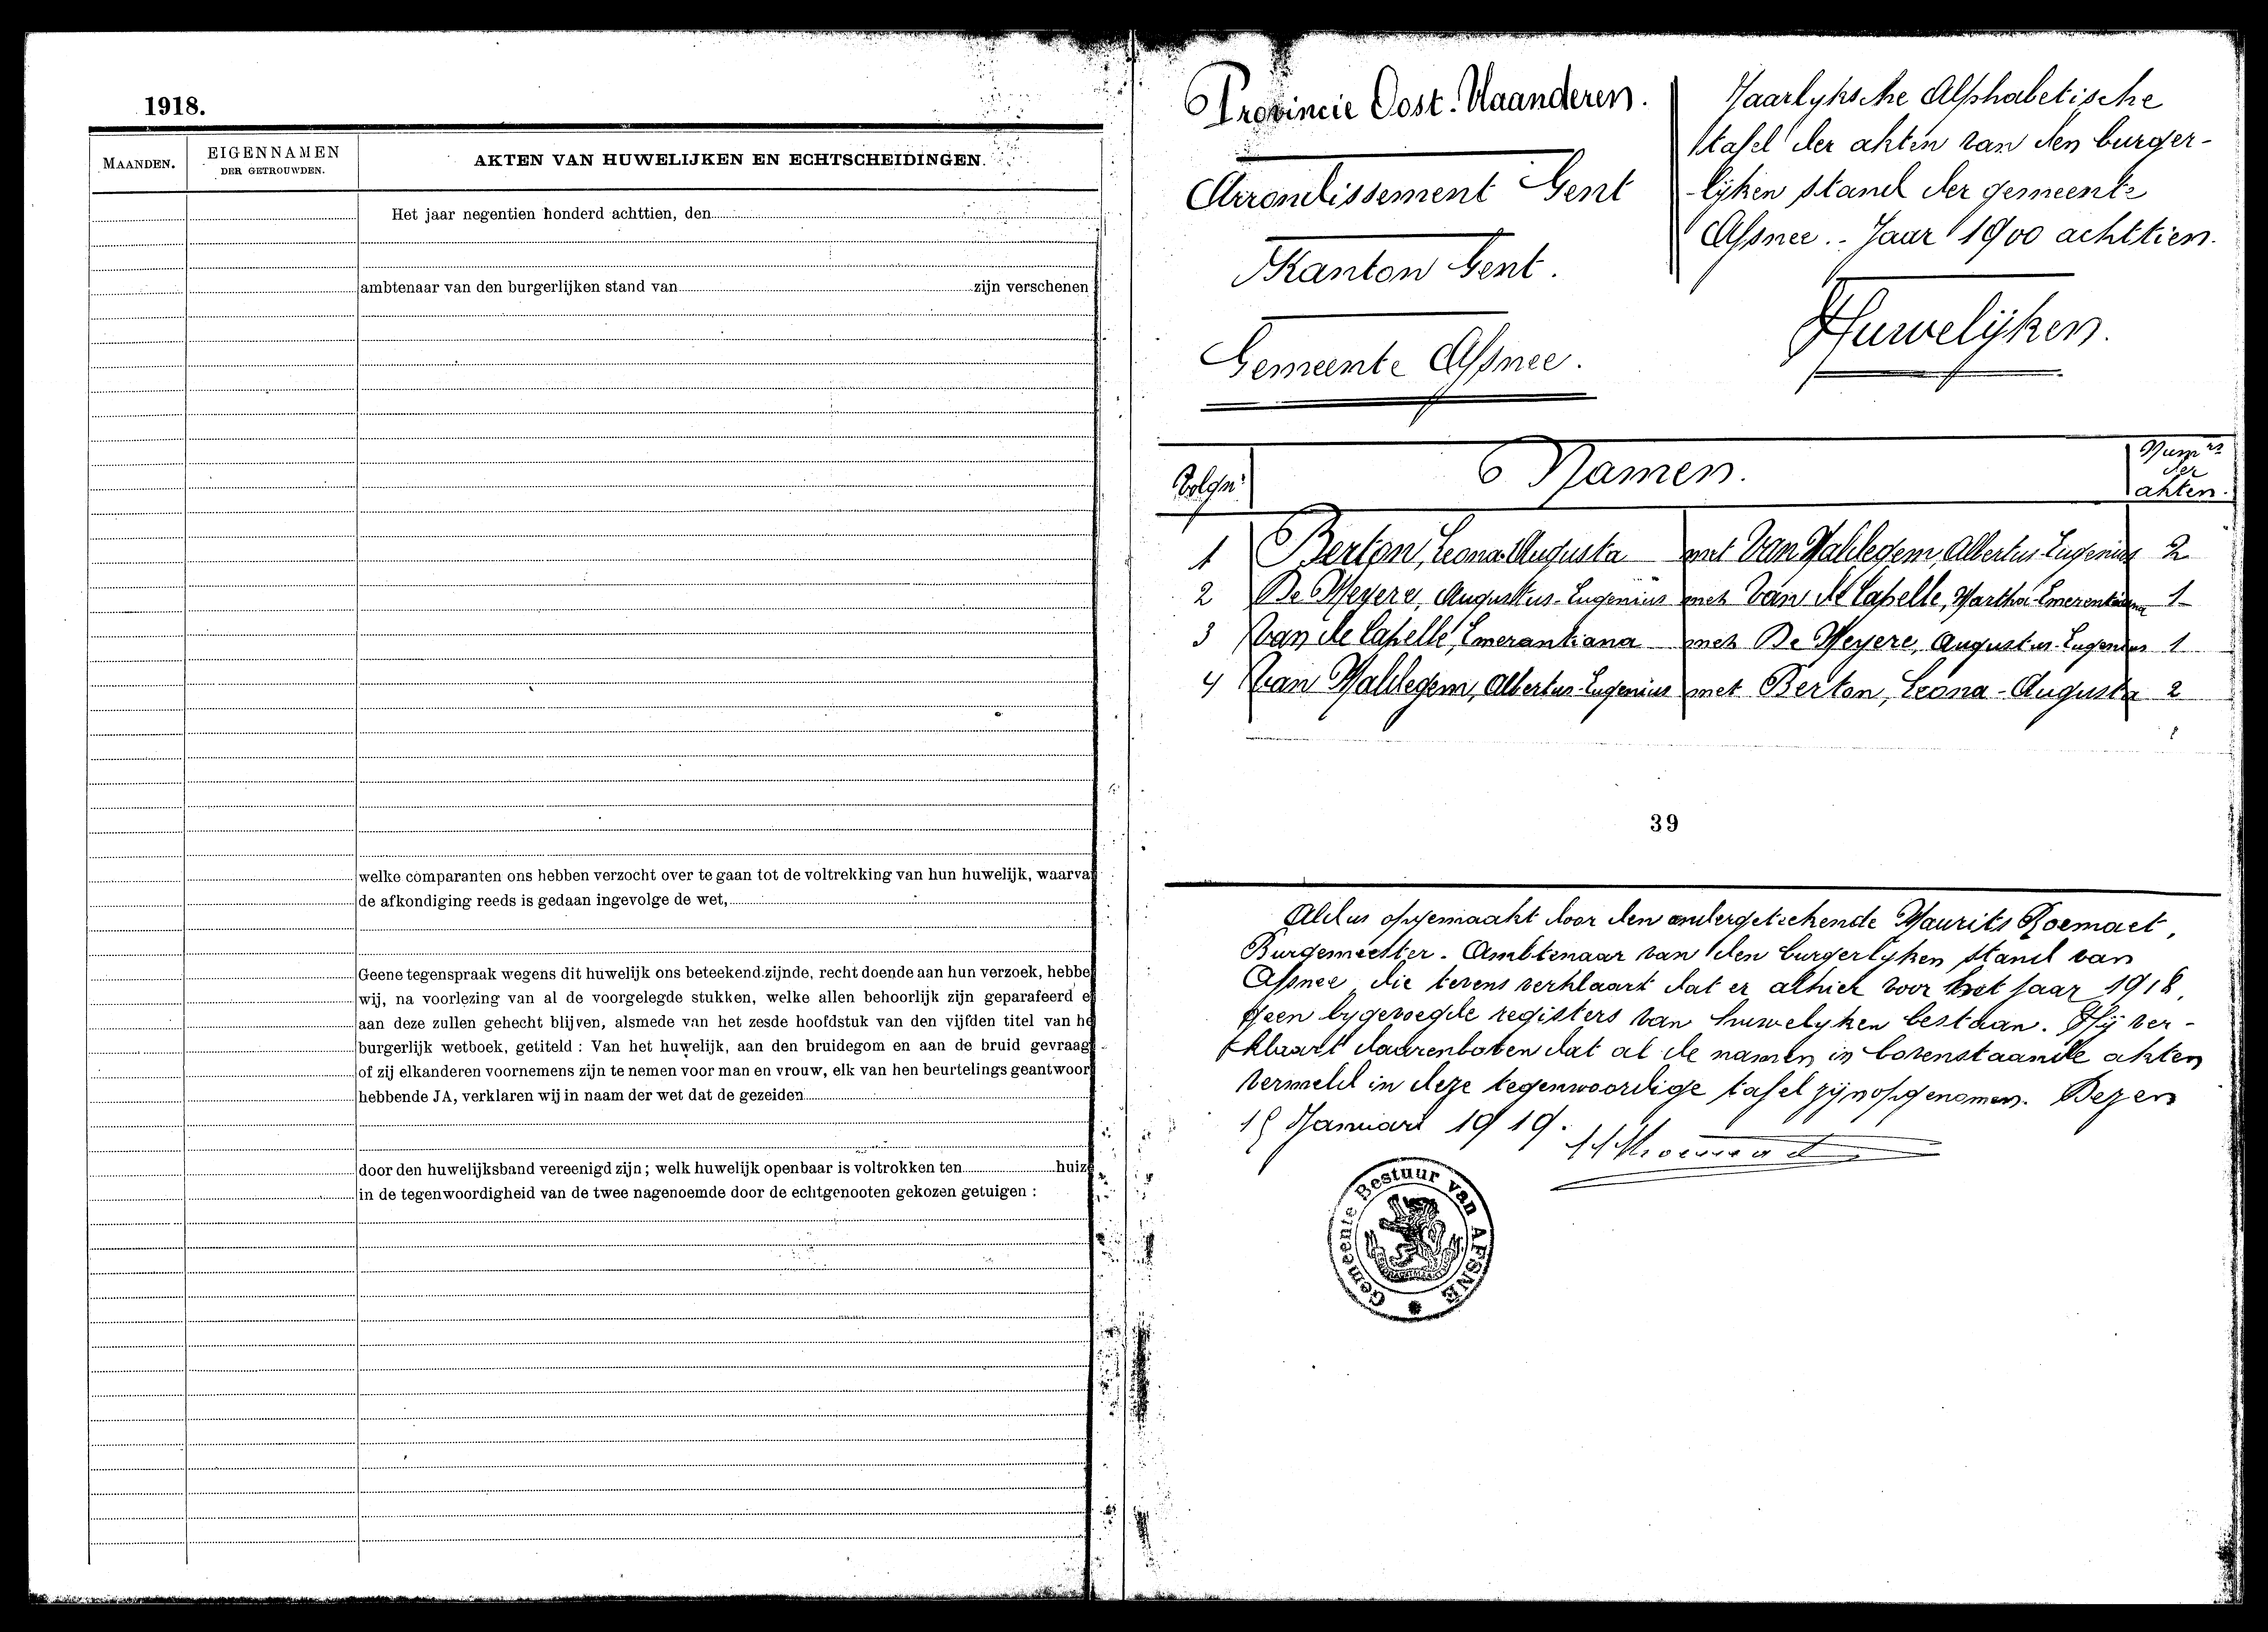 1918.
MAANDEN.
EIGENNAMEN
DER GETROUWDEN.
AKTEN VAN HUWELIJKEN EN ECHTSCHEIDINGEN.
Het jaar negentien honderd achttien, den
ambtenaar van den burgerlijken stand van zijn verschenen
welke comparanten ons hebben verzocht over te gaan tot de voltrekking van hun huwelijk, waarva
de afkondiging reeds is gedaan ingevolge de wet,
Geene tegenspraak wegens dit huwelijk ons beteekend zijnde, recht doende aan hun verzoek, hebbe
wij, na voorlezing van al de voorgelegde stukken, welke allen behoorlijk zijn geparafeerd e
aan deze zullen gehecht blijven, alsmede van het zesde hoofdstuk van den vijfden titel van he
burgerlijk wetboek, getiteld : Van het huwelijk, aan den bruidegom en aan de bruid gevraag
of zij elkanderen voornemens zijn te nemen voor man en vrouw, elk van hen beurtelings geantwoor
hebbende JA, verklaren wij in naam der wet dat de gezeiden
door den huwelijksband vereenigd zijn ; welk huwelijk openbaar is voltrokken ten huize
in de tegenwoordigheid van de twee nagenoemde door de echtgenooten gekozen getuigen :
Provincie Oost-Vlaanderen.
Arrondissement Gent
Kanton Gent.
Gemeente Afsnee.
Jaarlyksche Alphabetische
tafel der akten van den burger-
lijken stand der gemeente
Afsnee.- Jaar 1900 achttien.
Huwelijken.
Volgn.
Namen.
Num.rs
der
akten.
1 Berton, Leona-Augusta met Van Hahlegem, Albertus-Eugenius 2
2 De Meyere, Augustus-Eugenius met Van de Capelle, Martha-Emerentiana 1
3 Van de Capelle, Emerantiana met De Meyere, Augustus-Eugenius 1
4 Van Hahlegem, Albertus-Eugenius met Berton, Leona-Augusta 2
39
Aldus opgemaakt door den ondergeteekende Maurits Roemaet,
Burgemeester-Ambtenaar van den burgerlyken stand van
Afsnee, die tevens verklaart dat er alhier voor het jaar 1918,
geen bygevoegde registers van huwelyken bestaan. Hij ver-
klaart daarenboven dat al de namen in bovenstaande akten
vermeld in deze tegenwoordige tafel zijn opgenomen. Dezen
Januari 1919.
Gemeente Bestuur van AFSNÉ